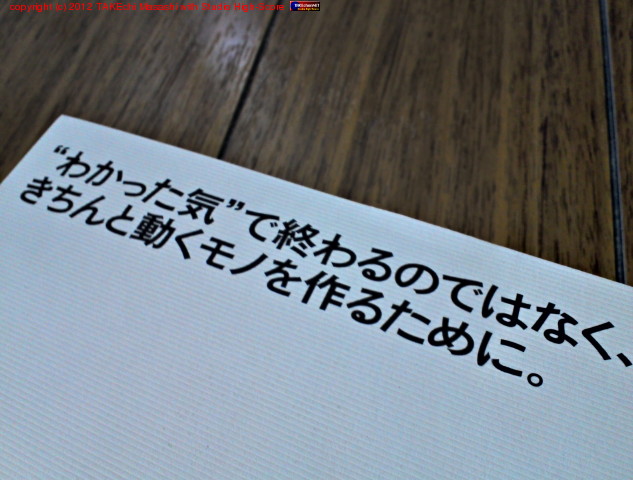 “わかった気”で終わるのではなく、
きちんと動くモノを作るために。